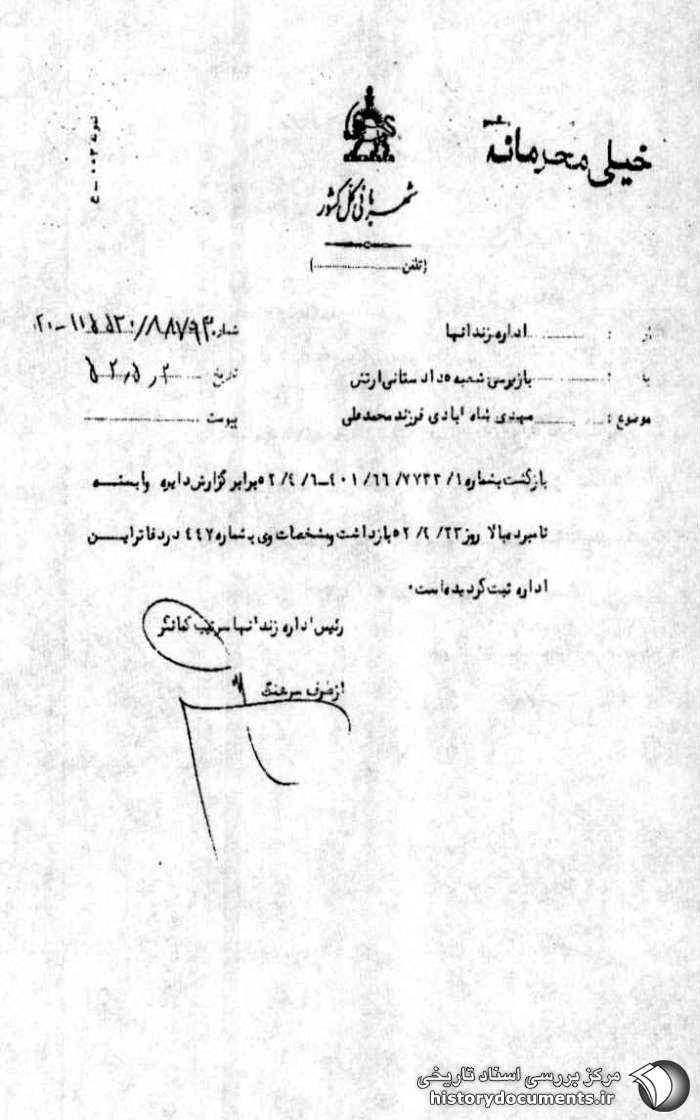 خیلی محرمانه
شهربانی کل کشور
(تلفن ............)
از : اداره زندانها
به : بازپرسی شعبه ۵ دادستانی ارتش
موضوع : مهدی شاه آبادی فرزند محمدعلی
شماره
تاریخ ۵۲٫۵٫۲
پیوست
بازگشت بشماره ۱/ ۷۷۳۳/ ۶۶/ ۴۰۱-۶/ ۴/ ۵۲ برابر گزارش دایره وابسته
نامبرده بالا روز ۲۳/ ۴/ ۵۲ بازداشت و مشخصات وی بشماره ۴۴۷ در دفاتر این
اداره ثبت گردیده است.
رئیس اداره زندانها سرتیپ کمانگر
از طرف سرهنگ
مرکز بررسی اسناد تاریخی
historydocuments.ir